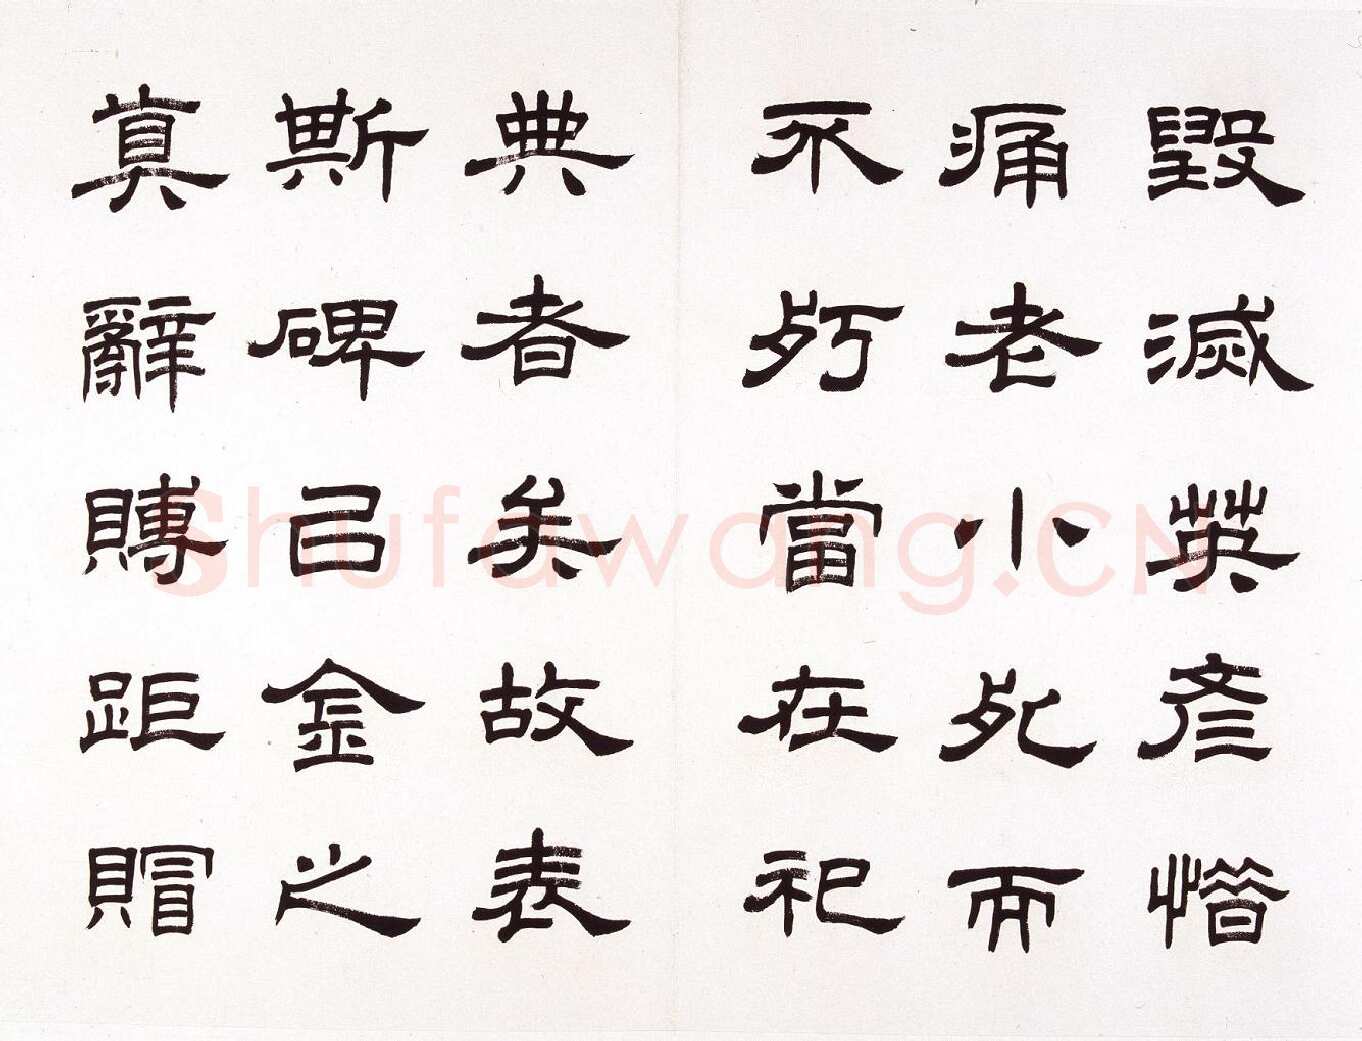 毀滅英彥惜
痛老小死而
不朽當在祀
典者矣故表
斯碑㠯金之
真辭賻距賵
Shufawang.CN